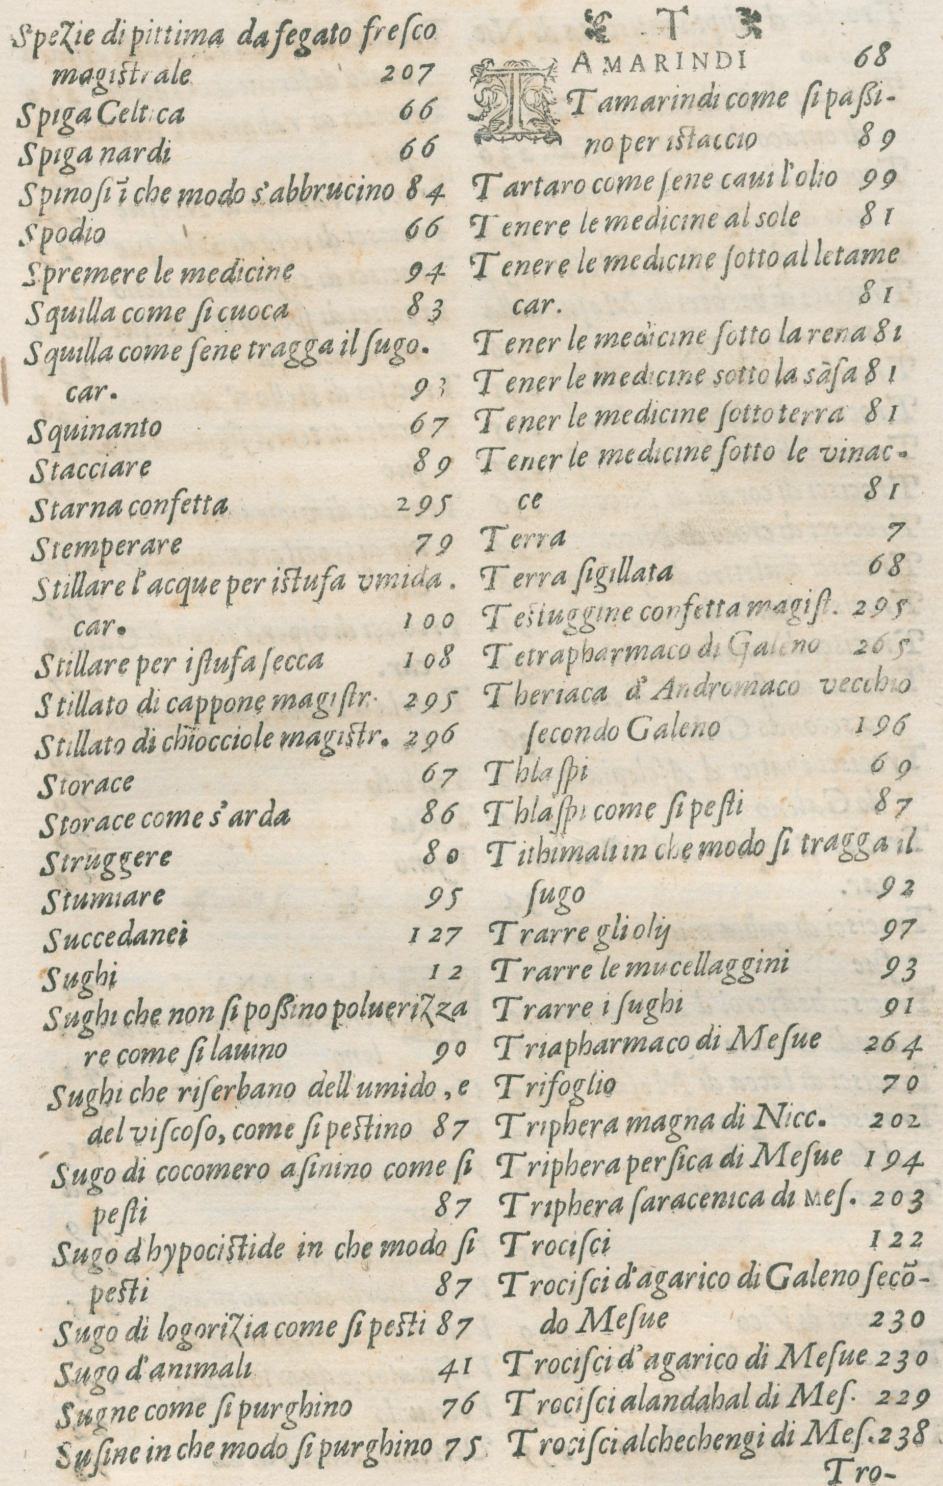 Speζie di pittima da fegato fresco
magistrale 207
Spiga Celtica 66
Spiga nardi 66
Spinosi ĩ che modo s'abbrucino 84
Spodio 66
Spremere le medicine 94
Squilla come si cuoca 83
Squilla come sene tragga il sugo.
car. 93
Squinanto 67
Stacciare 89
Starna confetta 295
Stemperare 79
Stillare l'acque per istufa vmida.
car. 100
Stillare per istufa secca 108
Stillato di cappone magistr. 295
Stillato di chiocciole magistr. 296
Storace 67
Storace come s'arda 86
Struggere 80
Stumiare 95
Succedanei 127
Sughi 12
Sughi che non si possino polueriζza
re come si lauino 90
Sughi che riserbano dell umido, e
del viscoso, come si pestino 87
Sugo di cocomero asinino come si
pesti 87
Sugo d'hypocistide in che modo si
pesti 87
Sugo di logoriζia come si pesti 87
Sugo d'animali 41
Sugne come si purghino 76
Susine in che modo si purghino 75
T
TAMARINDI 68
Tamarindi come si passi-
no per istaccio 89
Tartaro come sene caui l'olio 99
Tenere le medicine al sole 81
Tenere le medicine sotto al letame
car. 81
Tener le medicine sotto la rena 81
Tener le medicine sotto la sãsa 81
Tener le medicine sotto terra 81
Tener le medicine sotto le vinac-
ce 81
Terra 7
Terra sigillata 68
Testuggine confetta magist. 295
Tetrapharmaco di Galeno 265
Theriaca d'Andromaco vecchio
secondo Galeno 196
Thlaspi 69
Thlaspi come si pesti 87
Tithimali in che modo si tragga il
sugo 92
Trarre gli olij 97
Trarre le mucellaggini 93
Trarre i sughi 91
Triapharmaco di Mesue 264
Trifoglio 70
Triphera magna di Nicc. 202
Triphera persica di Mesue 194
Triphera saracenica di Mes. 203
Trocisci 122
Trocisci d'agarico di Galeno secõ-
do Mesue 230
Trocisci d'agarico di Mesue 230
Trocisci alandahal di Mes. 229
Trocisci alchechengi di Mes. 238
Tro-